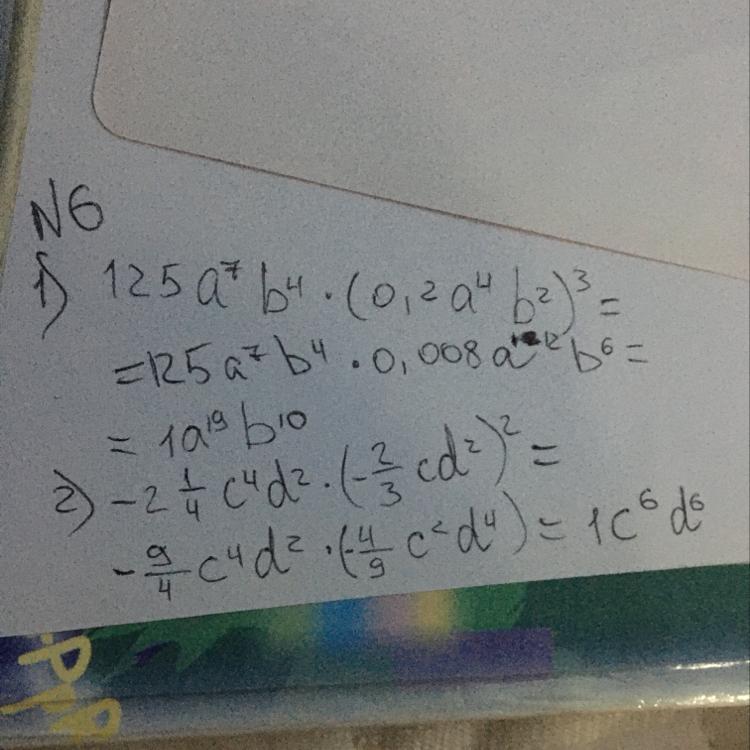 N6
1) 125a⁷b⁴·(0,2a⁴b²)³=
=125a⁷b⁴·0,008a¹²b⁶=
=1a¹⁹b¹⁰
2) -2 1/4 c⁴d²·(-2/3 cd²)²=
-9/4 c⁴d²·(-4/9 c²d⁴)=1c⁶d⁶